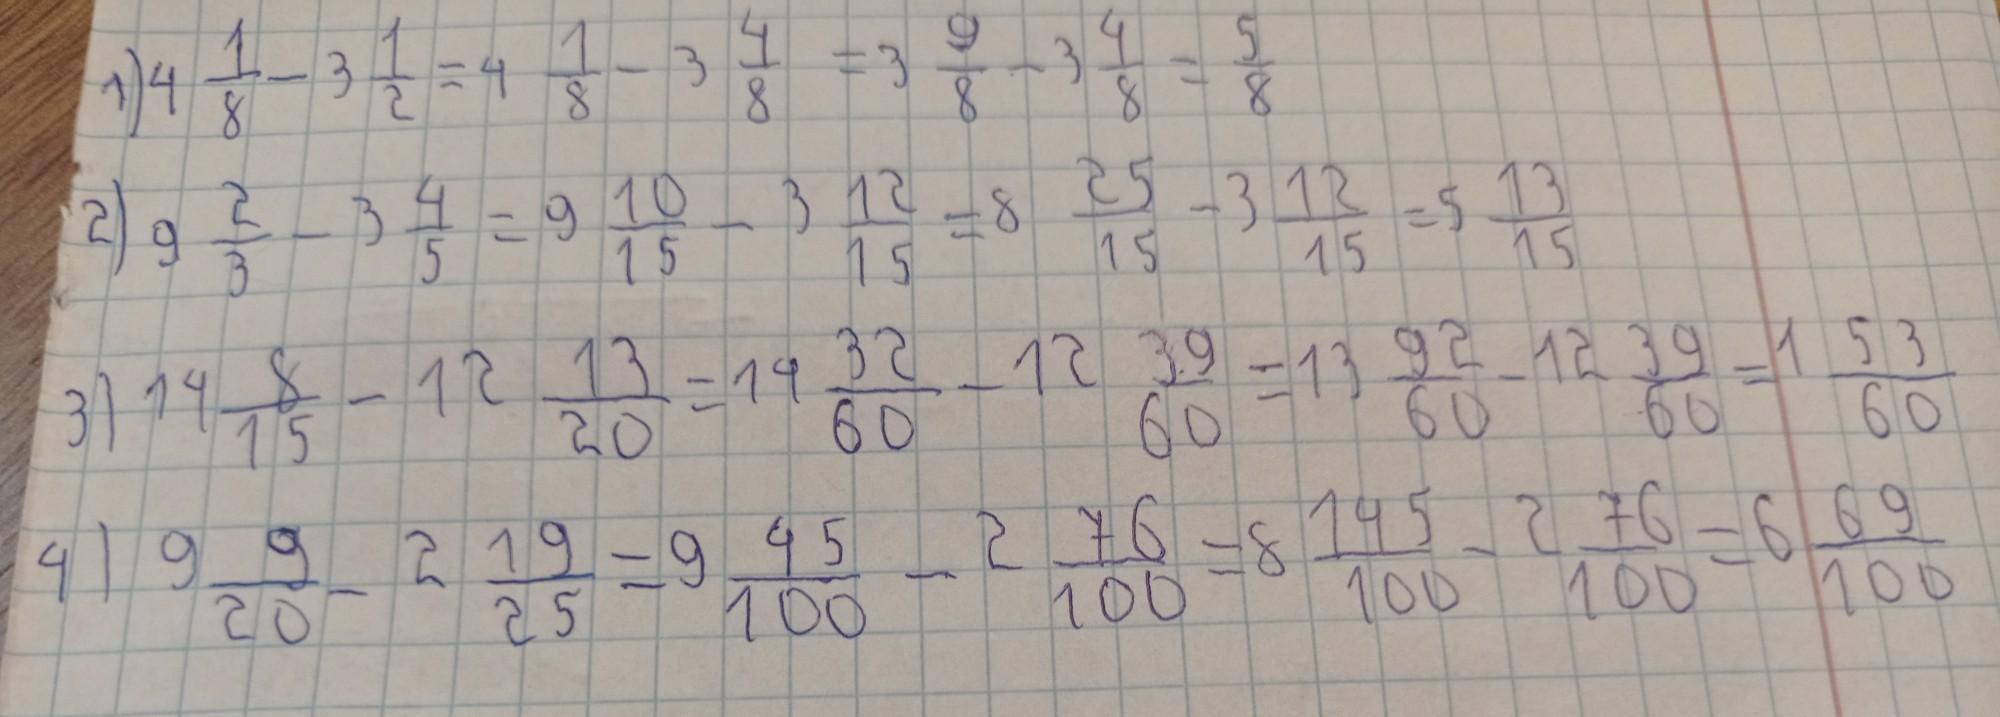 1) 4 1/8 - 3 1/2 = 4 1/8 - 3 4/8 = 3 9/8 - 3 4/8 = 5/8
2) 9 2/3 - 3 4/5 = 9 10/15 - 3 12/15 = 8 25/15 - 3 12/15 = 5 13/15
3) 14 8/15 - 12 13/20 = 14 32/60 - 12 39/60 = 13 92/60 - 12 39/60 = 1 53/60
4) 9 9/20 - 2 19/25 = 9 45/100 - 2 76/100 = 8 145/100 - 2 76/100 = 6 69/100